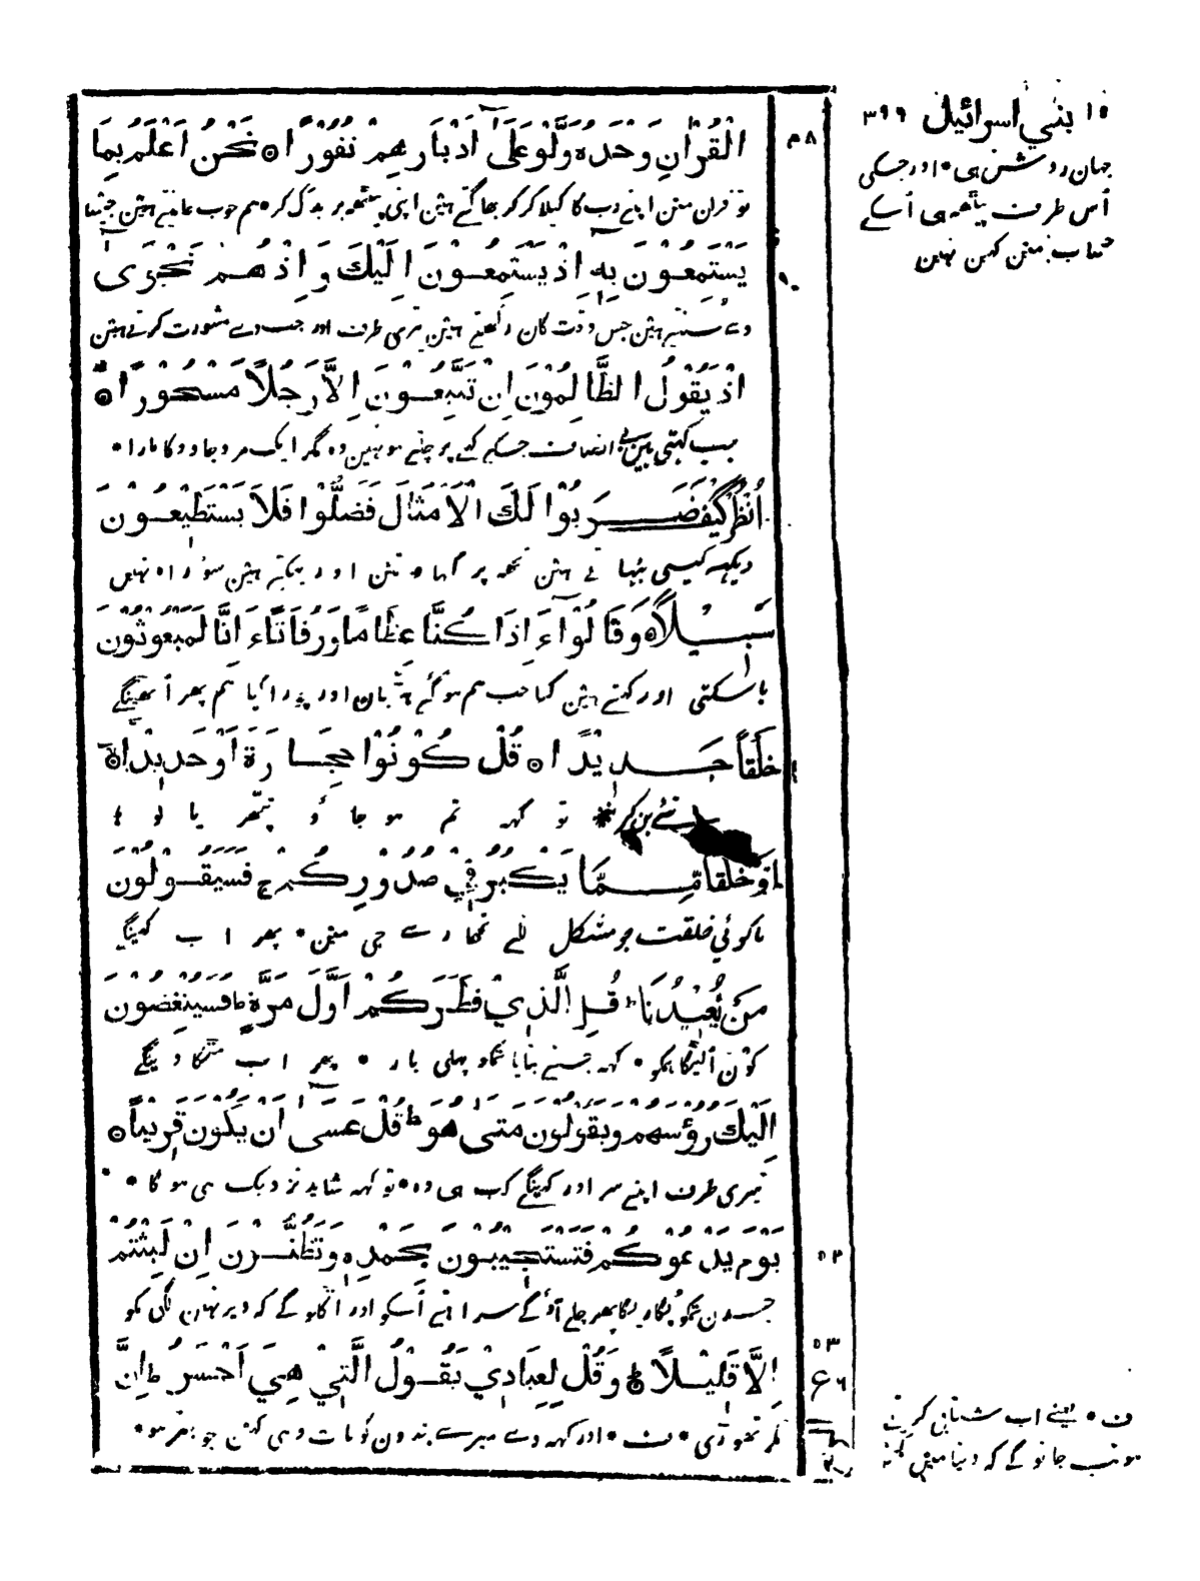 ١٥ بني اسرائيل ٣٩٩
جہان روشن ہی * اور جسکی
اُس طرف پیٹھہ ہی اُسکے
حساب مین کہین نہین
الْقُرْاٰنِ وَحْدَهٗ وَلَّوْ عَلٰٓى اَدْبَارِهِمْ نُفُوْرًا ٥ نَحْنُ اَعْلَمُ بِمَا
٤٨
تو قران مین اپنے رب کا کیلا کر کر بھاگتے ہین اپنی پیٹھہ پر بدک کر * ہم خوب جانتے ہین جیسا
يَسْتَمِعُوْنَ بِهٖٓ اِذْ يَسْتَمِعُوْنَ اِلَيْكَ وَ اِذْ هُمْ نَجْوٰٓى
وے سنتے ہین جس وقت کان رکھتے ہین تیری طرف اور جب وے مشورت کرتے ہین
اِذْ يَقُوْلُ الظَّالِمُوْنَ اِنْ تَتَّبِعُوْنَ اِلاَّ رَجُلاً مَسْحُوْرًا ٥
جب کہتی ہین بے انصاف جسکے کہے پر چلتے ہو نہین وہ مگر ایک مرد جادو کا مارا *
اُنْظُرْ كَيْفَ ضَرَبُوْا لَكَ الْاَمْثَالَ فَضَلُّوْا فَلاَ يَسْتَطِيْعُوْنَ
دیکھہ کیسی بٹھاتے ہین تجھہ پر کہاوتین اور بہکتے ہین سو راہ نہین
سَبِيْلاً ٥ وَ قَالُوْٓا ءَ اِذَا كُنَّا عِظَامًا وَّ رُفَاتًا ءَ اِنَّا لَمَبْعُوْثُوْنَ
پا سکتی اور کہتے ہین کیا جب ہم ہوگئے ہڈیان اور چورا کیا ہم پھر اُٹھینگے
خَلْقًا جَدِيْدًا ٥ قُلْ كُوْنُوْا حِجَارَةً اَوْ حَدِيْدًا ٥
نئے بن کر * تو کہہ تم ہو جاؤ پتھر یا لوہا
اَوْ خَلْقًا مِّمَّا يَكْبُرُ فِيْ صُدُوْرِكُمْ ج فَسَيَقُوْلُوْنَ
یا کوئی خلقت جو مشکل لگے تمھارے جی مین * پھر اب کہینگے
مَنْ يُّعِيْدُنَا ط قُلِ الَّذِيْ فَطَرَكُمْ اَوَّلَ مَرَّةٍ ط فَسَيُنْغِضُوْنَ
کون اُلٹیگا ہمکو * کہہ جسنے بنایا تمکو پہلی بار * پھر اب مٹکا دینگے
اِلَيْكَ رُؤُسَهُمْ وَ يَقُوْلُوْنَ مَتٰى هُوَ ط قُلْ عَسٰٓى اَنْ يَّكُوْنَ قَرِيْبًا ٥
تیری طرف اپنے سر اور کہینگے کب ہی وہ * تو کہہ شاید نزدیک ہی ہوگا *
يَوْمَ يَدْعُوْكُمْ فَتَسْتَجِيْبُوْنَ بِحَمْدِهٖ وَ تَظُنُّوْنَ اِنْ لَّبِثْتُمْ
٥٢
جسدن تمکو پکاریگا پھر چلے آؤگے سراہتے اُسکو اور اٹکلوگے کہ دیر نہین لگی تمکو
٥٣
اِلاَّ قَلِيْلاً ٥ وَ قُلْ لِعِبَادِيْ يَقُوْلُ الَّتِيْ هِيَ اَحْسَنُ ط اِنَّ
ع ٦
مگر تھوڑی * ف * اور کہہ دے میرے بندون کو بات وہی کہین جو بہتر ہو *
ف * یعنے اب شتابی کرتے
ہو تب جانوگے کہ دنیا مین کچھہ